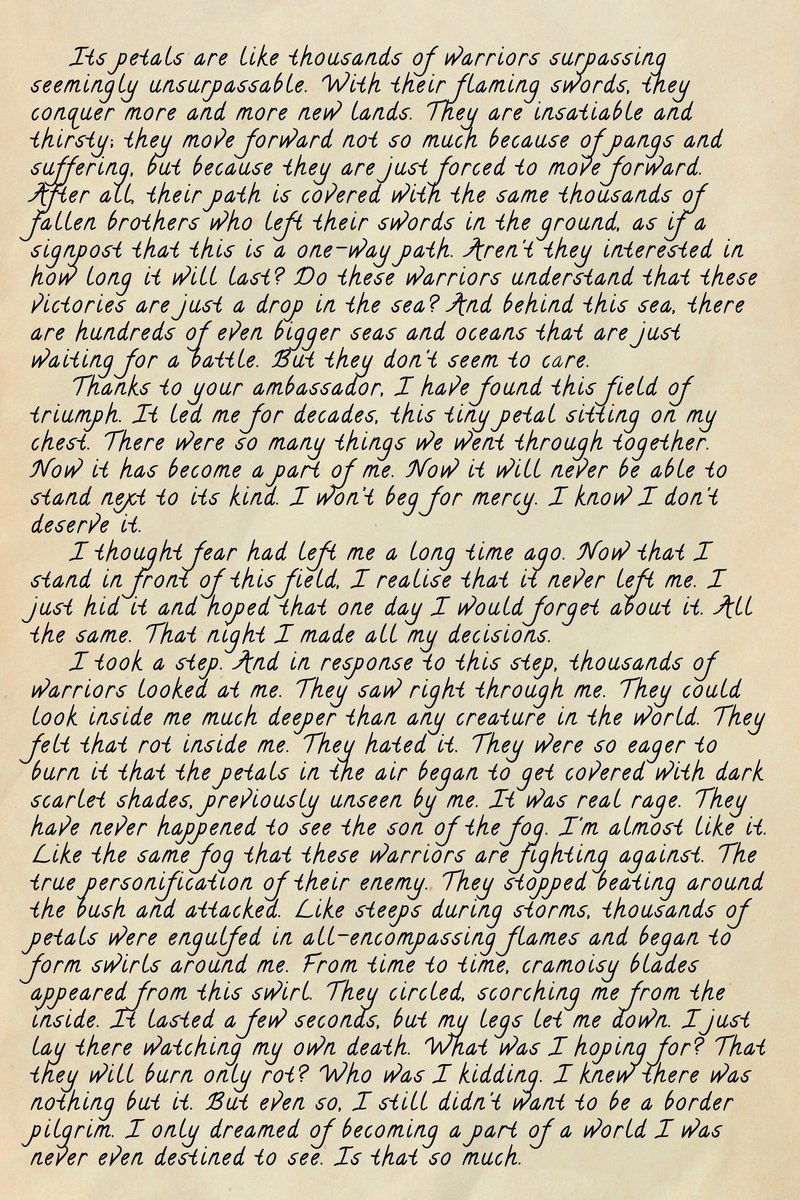 Its petals are like thousands of warriors surpassing
seemingly unsurpassable. With their flaming swords, they
conquer more and more new lands. They are insatiable and
thirsty; they move forward not so much because of pangs and
suffering, but because they are just forced to move forward.
After all, their path is covered with the same thousands of
fallen brothers who left their swords in the ground, as if a
signpost that this is a one-way path. Aren't they interested in
how long it will last? Do these warriors understand that these
victories are just a drop in the sea? And behind this sea, there
are hundreds of even bigger seas and oceans that are just
waiting for a battle. But they don't seem to care.
Thanks to your ambassador, I have found this field of
triumph. It led me for decades, this tiny petal sitting on my
chest. There were so many things we went through together.
Now it has become a part of me. Now it will never be able to
stand next to its kind. I won't beg for mercy. I know I don't
deserve it.
I thought fear had left me a long time ago. Now that I
stand in front of this field, I realise that it never left me. I
just hid it and hoped that one day I would forget about it. All
the same. That night I made all my decisions.
I took a step. And in response to this step, thousands of
warriors looked at me. They saw right through me. They could
look inside me much deeper than any creature in the world. They
felt that rot inside me. They hated it. They were so eager to
burn it that the petals in the air began to get covered with dark
scarlet shades, previously unseen by me. It was real rage. They
have never happened to see the son of the fog. I'm almost like it.
Like the same fog that these warriors are fighting against. The
true personification of their enemy. They stopped beating around
the bush and attacked. Like steeps during storms, thousands of
petals were engulfed in all-encompassing flames and began to
form swirls around me. From time to time, cramoisy blades
appeared from this swirl. They circled, scorching me from the
inside. It lasted a few seconds, but my legs let me down. I just
lay there watching my own death. What was I hoping for? That
they will burn only rot? Who was I kidding. I knew there was
nothing but it. But even so, I still didn't want to be a border
pilgrim. I only dreamed of becoming a part of a world I was
never even destined to see. Is that so much.